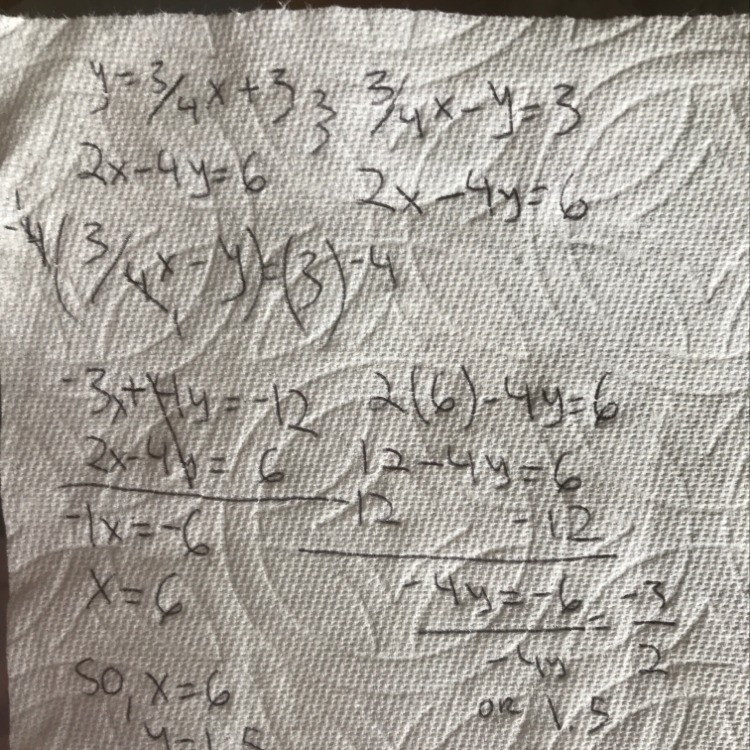 y=3/4x+3 ; 3/4x-y=3
2x-4y=6 2x-4y=6
-4(3/4x-y)=(3)-4
-3x+4y=-12 2(6)-4y=6
2x-4y=6 12-4y=6
-1x=-6 -12 -12
x=6 -4y=-6 = -3
-4y 2
SO, x=6 or 1.5
y=1.5